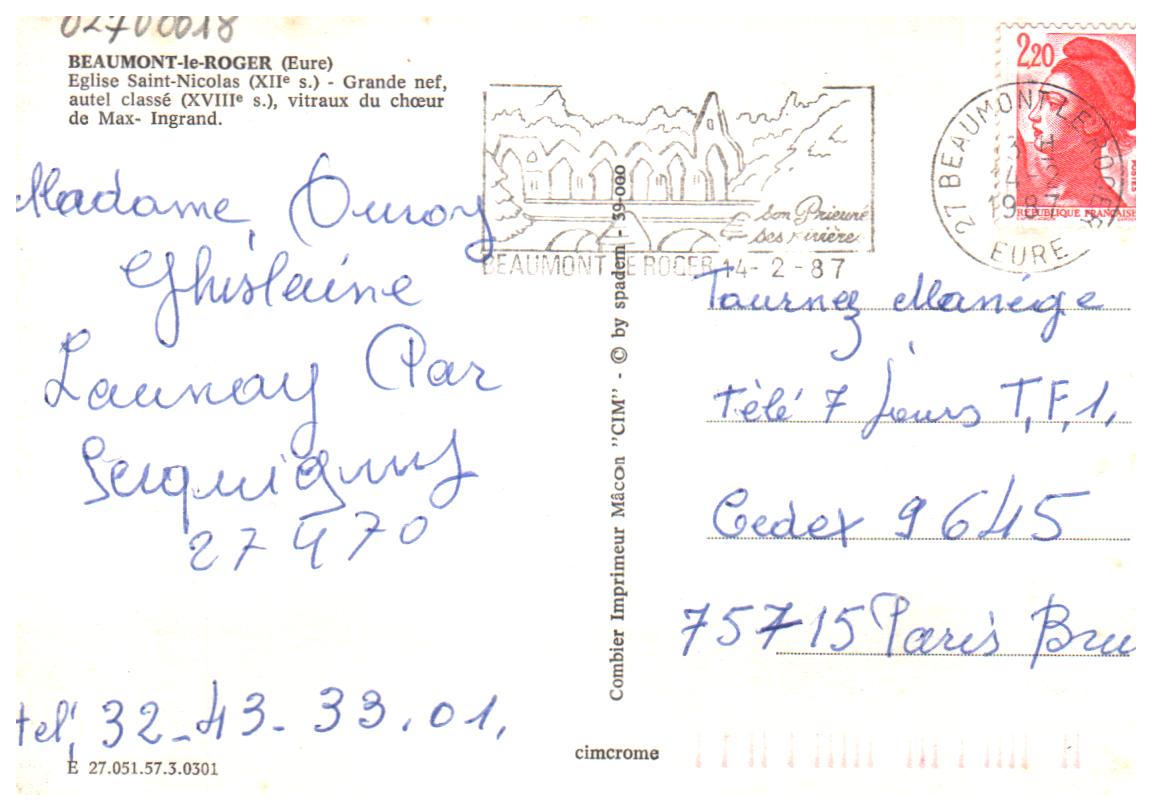 02700018
BEAUMONT-le-ROGER (Eure)
Eglise Saint-Nicolas (XIIe s.) - Grande nef,
autel classé (XVIIIe s.), vitraux du chœur
de Max- Ingrand.
Madame Duroy
Ghislaine
Launay Par
Serquigny
27470
tel, 32-43-33.01,
E 27.051.57.3.0301
Combier Imprimeur Mâcon "CIM" - © by spadem - 39-000
cimcrome
son Prieuré
ses rivières
BEAUMONT LE ROGER 14-2-87
2,20
POSTES
REPUBLIQUE FRANÇAISE
27 BEAUMONT-LE-ROGER
1987
EURE
Tournez Manège
Télé 7 Jours T,F,1,
Cedex 9645
75715 Paris Bru